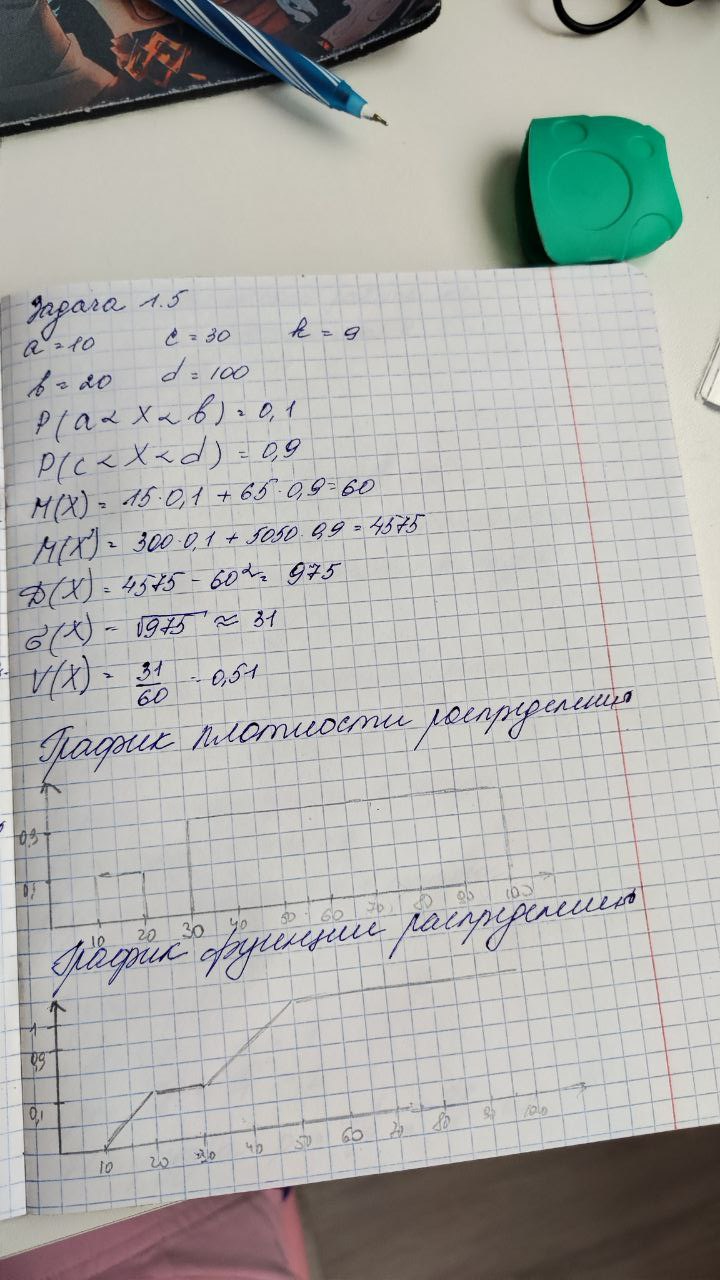 Задача 1.5
a = 10 c = 30 k = 9
b = 20 d = 100
P(a < X < b) = 0,1
P(c < X < d) = 0,9
M(X) = 15·0,1 + 65·0,9 = 60
M(X²) = 300·0,1 + 5050·0,9 = 4575
D(X) = 4575 - 60² = 975
σ(X) = √975 ≈ 31
V(X) = 31/60 = 0,51
График плотности распределения
0,9
0,1
10 20 30 40 50 60 70 80 90 100
График функции распределения
1
0,9
0,1
10 20 30 40 50 60 70 80 90 100